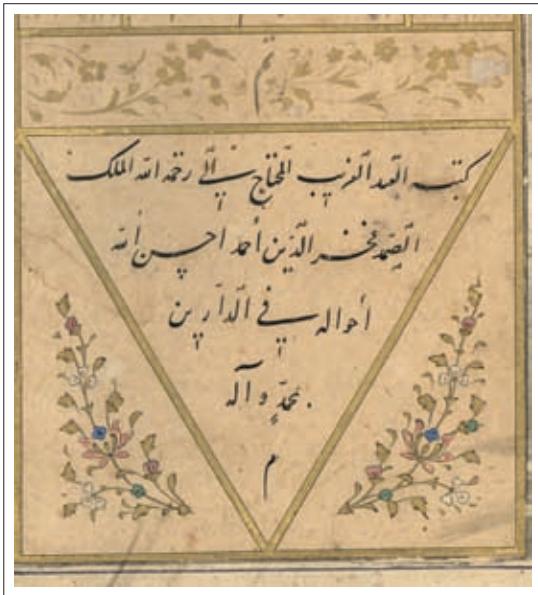 تم
كتبه العبد الغريب المحتاج إلى رحمة الله الملك
الصمد فخر الدين أحمد احسن الله
أحواله في الدارين
بمحمد وآله
م